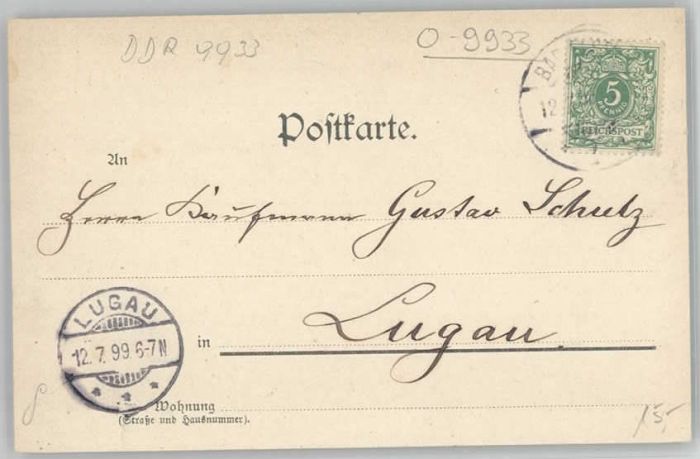 DDR 9933
O-9933
BA
12
5
PFENNIG
REICHSPOST
Postkarte.
An
Herrn Kaufmann Gustav Schulz
in Lugau.
LUGAU
12.7.99.6-7N
Wohnung
(Straße und Hausnummer).
15,-